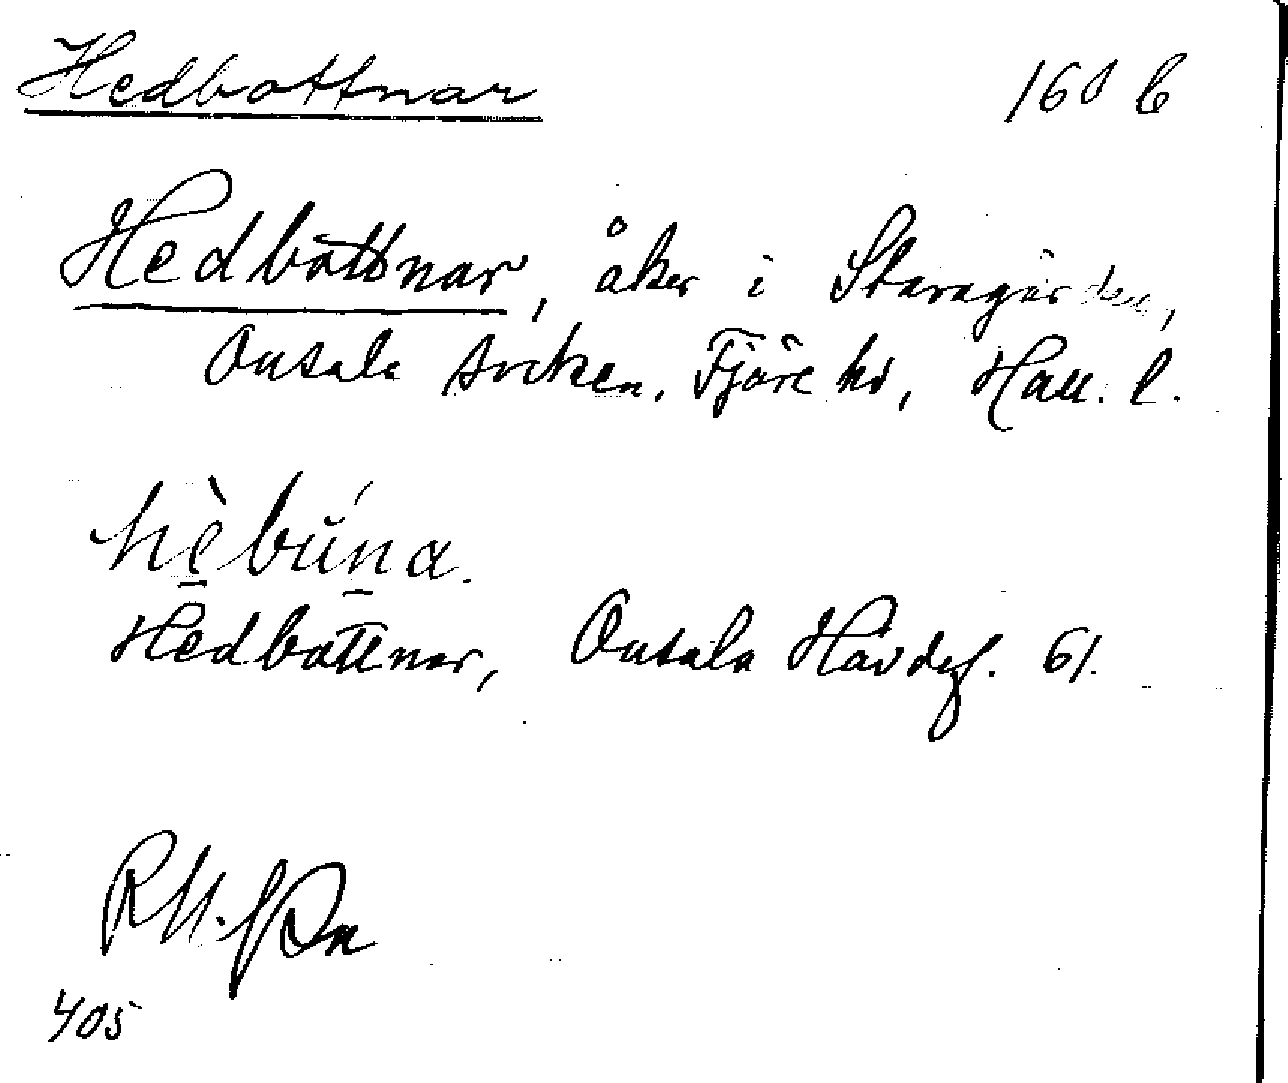 Hedbottnar 160 b
Hedbottnar, åker i Staragården,
Onsala socken, Fjäre hd, Hall. l.
hèbúna.
Hedbottnar, Onsala Hävdef. 61.
405